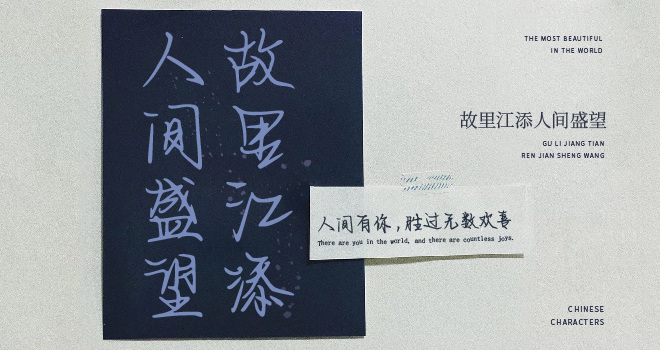 故里江添
人间盛望
THE MOST BEAUTIFUL
IN THE WORLD
故里江添人间盛望
GU LI JIANG TIAN
REN JIAN SHENG WANG
人间有你，胜过无数欢喜
There are you in the world, and there are countless joys.
CHINESE
CHARACTERS